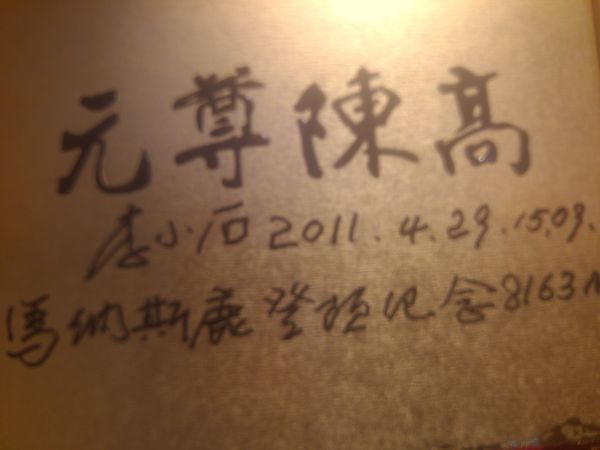 元尊陳高
李小石 2011.4.29.15.09.
馬納斯鹿登頂紀念8163M